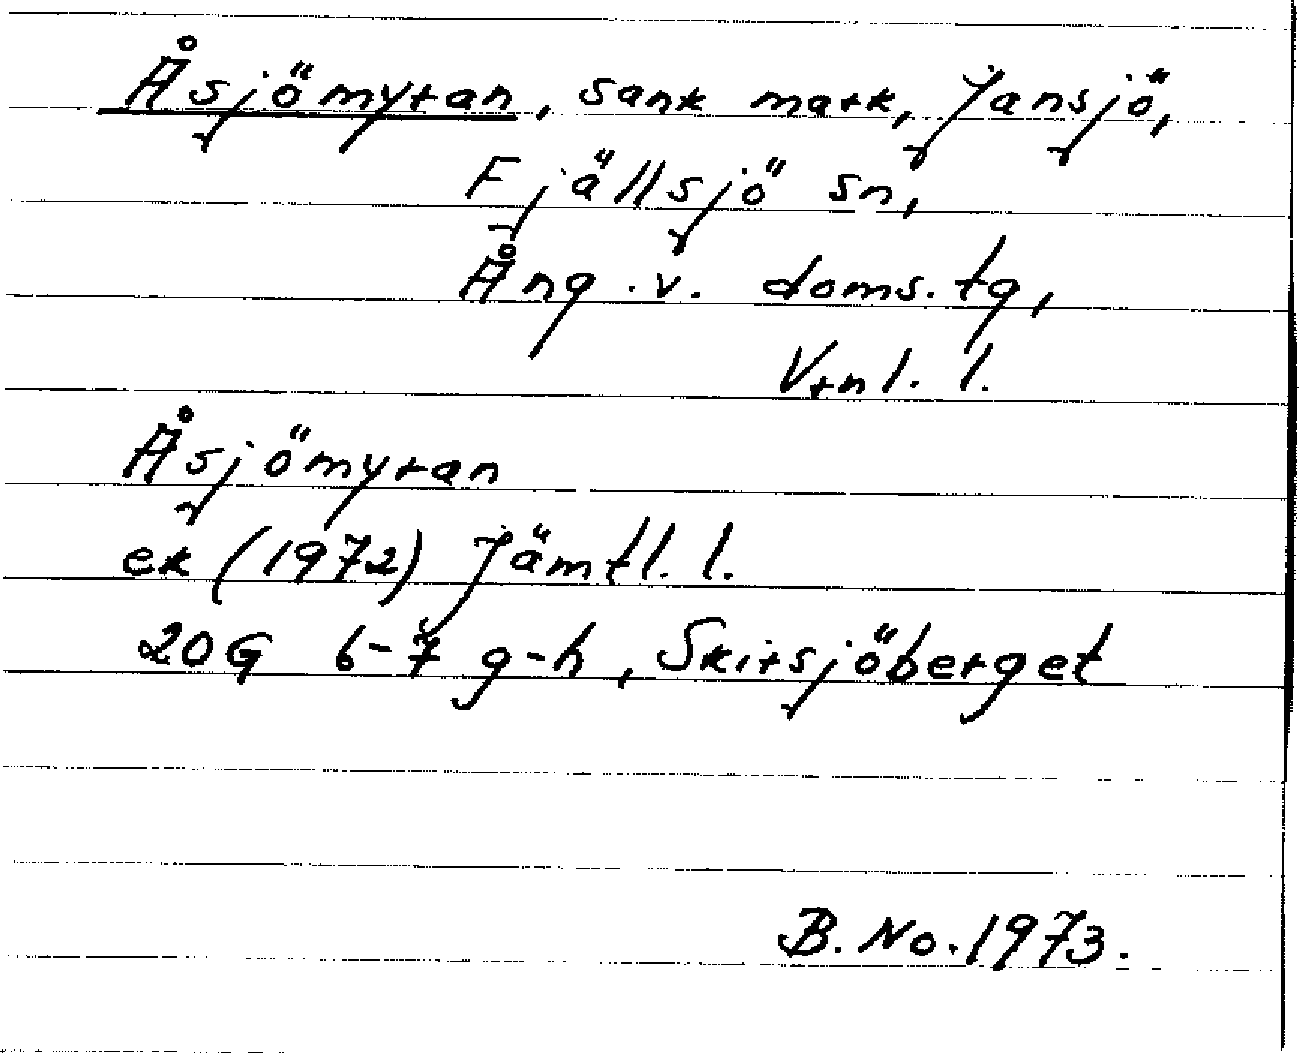 Åsjömyran, sank mark, Jansjö,
Fjällsjö sn,
Ång. v. doms. tg,
Vtnl. l.
Åsjömyran
ek (1972) Jämtl. l.
20G 6-7 g-h, Skirsjöberget
B. No. 1973.